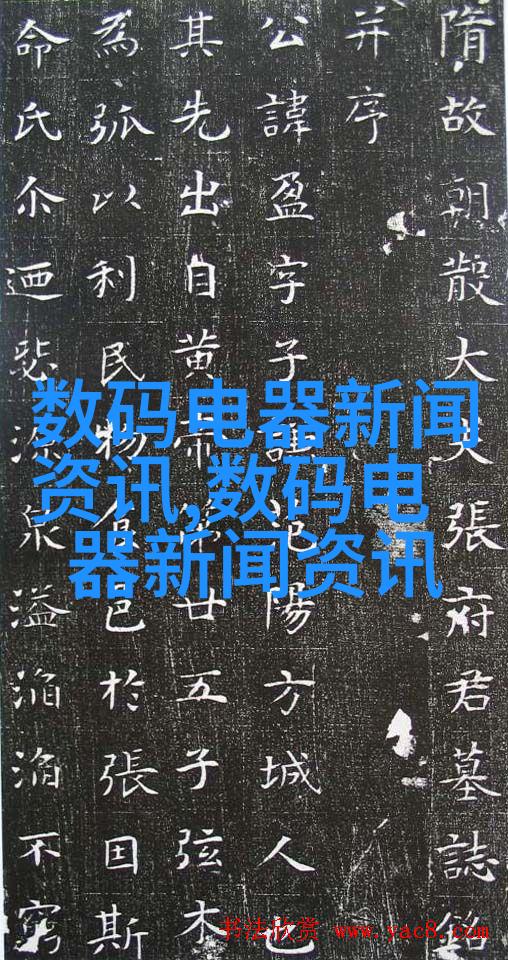 隋故朝散大夫張府君墓誌銘
并序
公諱盈字子陽方城人也
其先出自黃帝廿五子弦木
為弧以利民物食邑於張因斯
命氏尒迺源泉溢滔滔不窮
数码电器新闻
资讯,数码电
器新闻资讯
书法欣赏 www.yac8.com